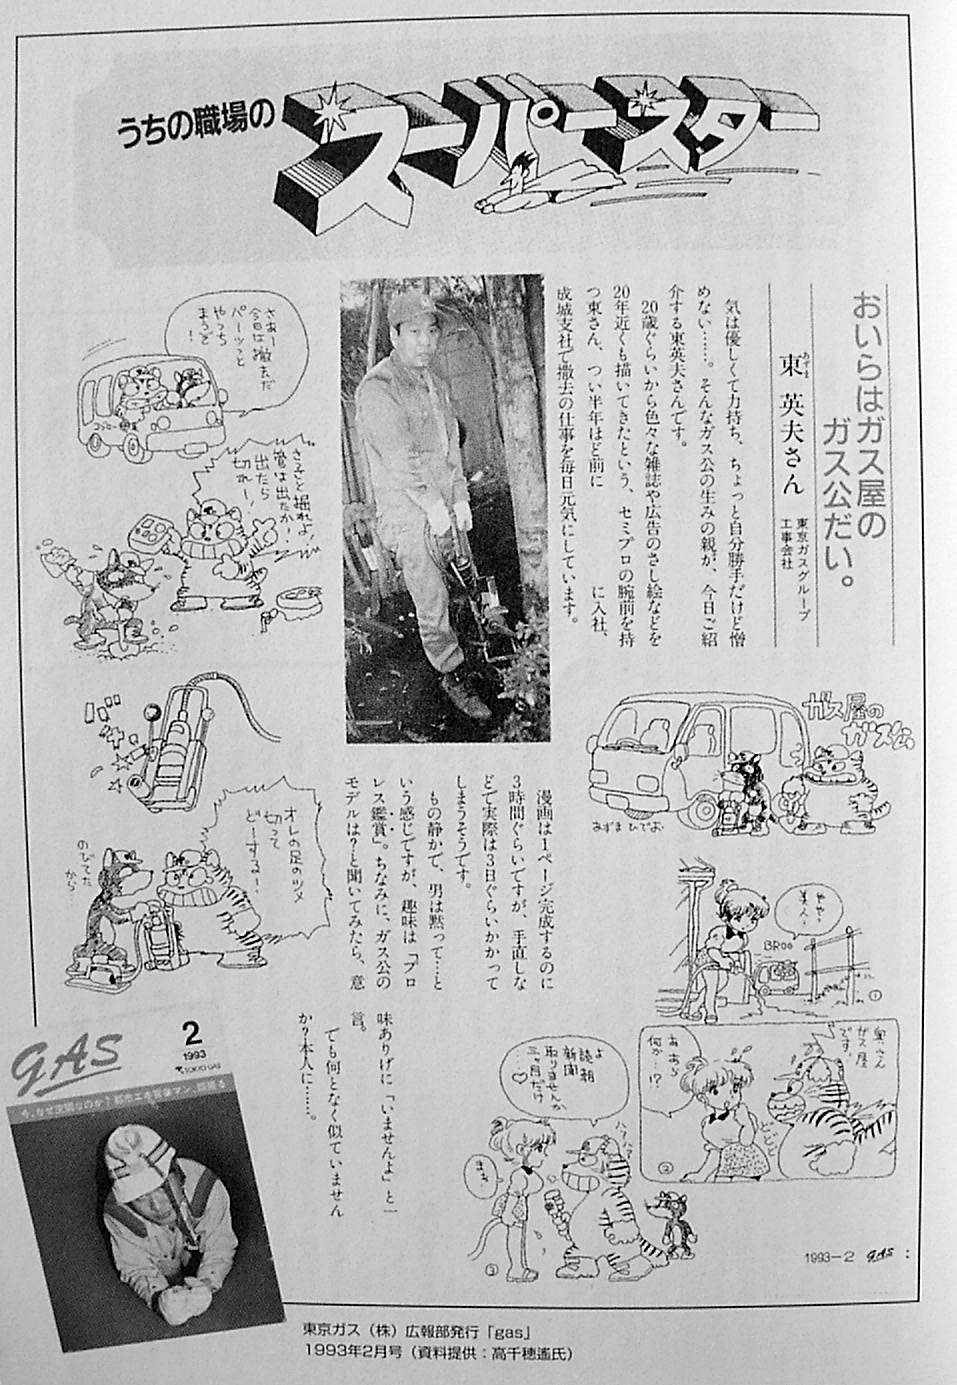 うちの職場の
スーパースター
おいらはガス屋の
ガス公だい。
東 英夫さん
あずま
東京ガスグループ
工事会社
気は優しくて力持ち、ちょっと自分勝手だけど憎
めない……。そんなガス公の生みの親が、今日ご紹
介する東英夫さんです。
20歳ぐらいから色々な雑誌や広告のさし絵などを
20年近くも描いてきたという、セミプロの腕前を持
つ東さん、つい半年ほど前に　　　　　に入社、
成城支社で撤去の仕事を毎日元気にしています。
さあー
今日は撤去だ
パーッと
やっち
まうぞ
!
さっさと掘れよ!
管は出たか?
出たら
切れー!
ガス屋の
ガス公
あずま ひでお
漫画は1ページ完成するのに
3時間ぐらいですが、手直しな
どで実際は3日ぐらいかかって
しまうそうです。
もの静かで、男は黙って…と
いう感じですが、趣味は「プロ
レス鑑賞」。ちなみに、ガス公の
モデルは?と聞いてみたら、意
味ありげに「いませんよ」と一
言。
でも何となく似ていません
か?本人に……。
オレの足のツメ
切って
どーする!
のびてた
から…
やや!
美人!
BROO
①
奥さん
ガス屋
です!
ああら
何か…!?
②
よ
読朝
新聞
取りませんか
三ヶ月だけ
♡
まあ
③
GAS
2
1993
TOKYO GAS
1993-2 GAS :
東京ガス（株）広報部発行「gas」
1993年2月号（資料提供：高千穂遙氏）